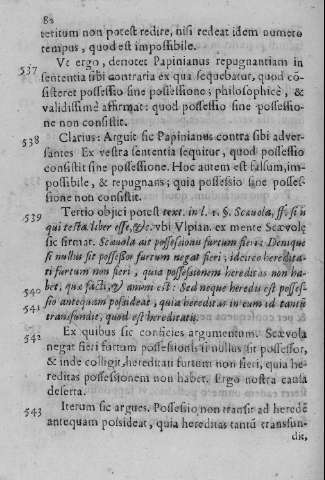 82
teritum non potest redire, nisi redeat idem numero
tempus, quod est impossibile.
537 Vt ergo, denotet Papinianus repugnantiam in
sententia sibi contraria ex qua sequebatur, quod cō-
sisteret possessio sine possessione; philosophicè, &
validissimè affirmat: quod possessio sine possessio-
ne non consistit.
538 Clarius: Arguit sic Papinianus contra sibi adver-
santes Ex vestra sententia sequitur, quod possessio
consistit sine possessione. Hoc autem est falsum, im-
possibile, & repugnans; quia possessio sine posses-
sione non consistit.
539 Tertio objici potest text. in l. 1. §. Scævola, ff. si is
qui testa. liber esse, &c. vbi Vlpian. ex mente Scævolę
sic firmat. Scævola ait possessionis furtum fieri: Denique
si nullus sit possessor furtum negat fieri; idcirco heredita-
ti furtum non fieri, quia possessionem hereditas non ha-
bet, quæ facti, & animi est: Sed neque heredis est posses-
540 sio antequam possideat, quia hereditas in eum id tantū
541 transfundit, quod est hereditatis.
542 Ex quibus sic conficies argumentum. Scævola
negat fieri furtum possessionis si nullus sit possessor,
& inde colligit, hereditati furtum non fieri, quia he-
reditas possessionem non habet. Ergo nostra causa
deserta.
543 Iterum sic argues. Possessio non transit ad heredē
antequam possideat, quia hereditas tantū transfun-
dit,